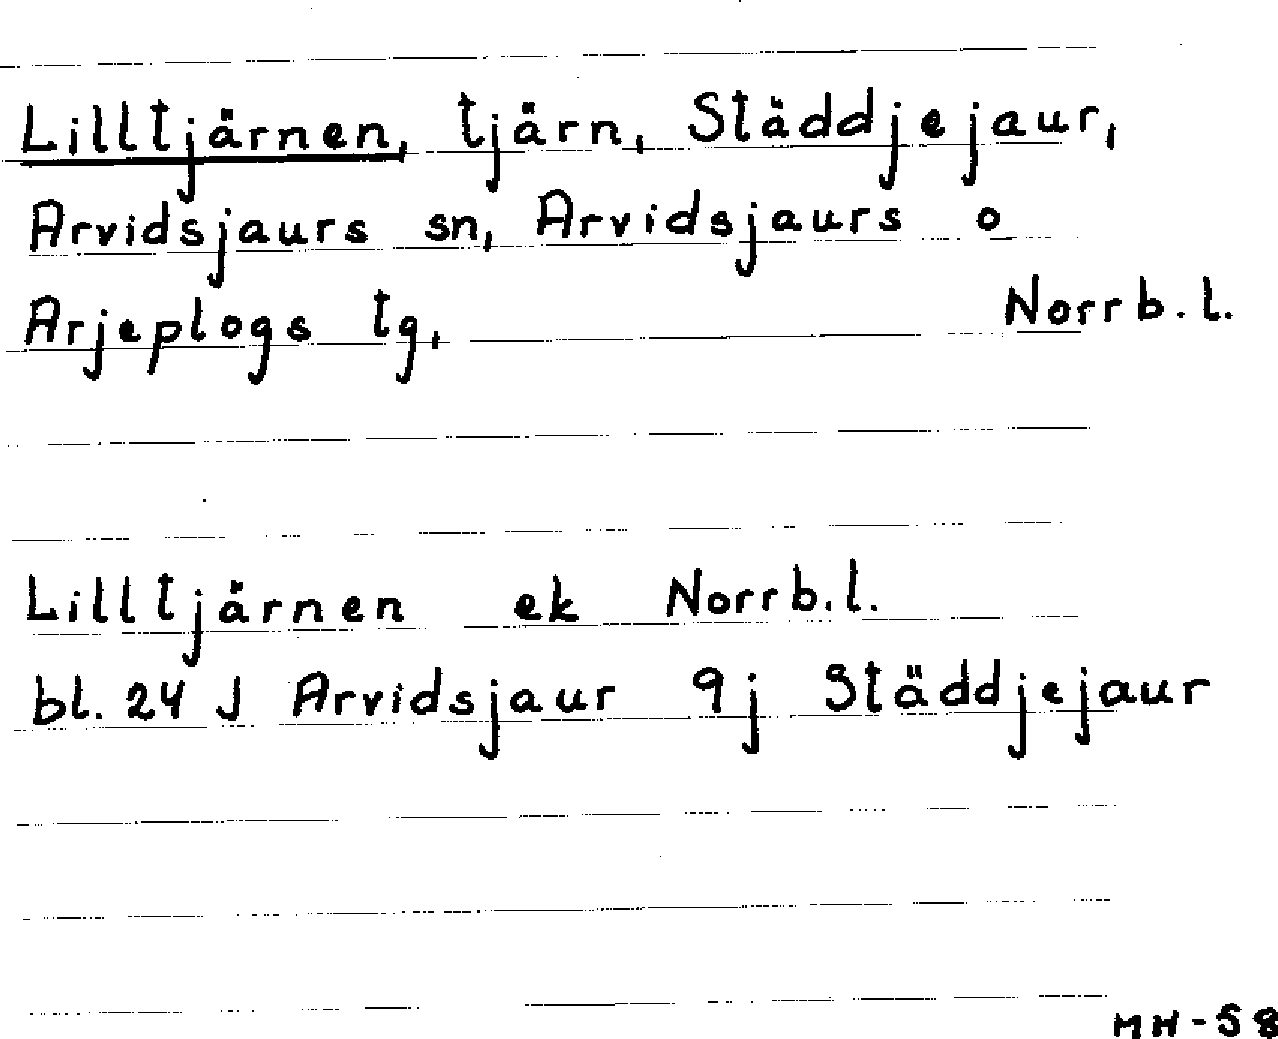 Lilltjärnen, tjärn, Städdjejaur,
Arvidsjaurs sn, Arvidsjaurs o
Arjeplogs tg, Norrb. l.
Lilltjärnen ek Norrb. l.
bl. 24 J Arvidsjaur 9j Städdjejaur
MH-58